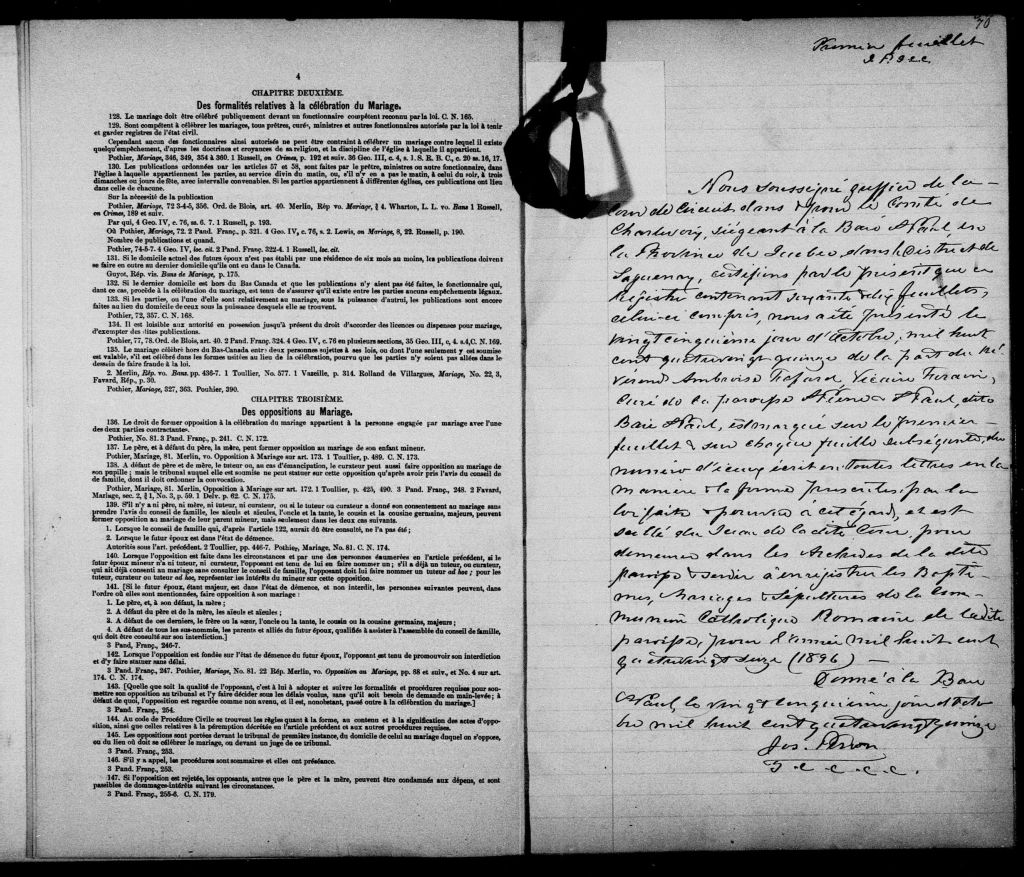 4
CHAPITRE DEUXIÈME.
Des formalités relatives à la célébration du Mariage.
128. Le mariage doit être célébré publiquement devant un fonctionnaire compétent reconnu par la loi. C. N. 165.
129. Sont compétents à célébrer les mariages, tous prêtres, curés, ministres et autres fonctionnaires autorisés par la loi à tenir
et garder registres de l'état civil.
Cependant aucun des fonctionnaires ainsi autorisés ne peut être contraint à célébrer un mariage contre lequel il existe
quelqu'empêchement, d'après les doctrines et croyances de sa religion, et la discipline de l'église à laquelle il appartient.
Pothier, Mariage, 346, 349, 354 à 360. 1 Russell, on Crimes, p. 192 et suiv. 36 Geo. III, c. 4, s. 1. S. R. B. C., c. 20 ss. 16, 17.
130. Les publications ordonnées par les articles 57 et 58, sont faites par le prêtre, ministre ou autre fonctionnaire, dans
l'église à laquelle appartiennent les parties, au service divin du matin, ou, s'il n'y en a pas le matin, à celui du soir, à trois
dimanches ou jours de fête, avec intervalle convenables. Si les parties appartiennent à différentes églises, ces publications ont lieu
dans celle de chacune.
Sur la nécessité de la publication
Pothier, Mariage, 72 3-4-5, 356. Ord. de Blois, art. 40. Merlin, Rép vo. Mariage, § 4. Wharton, L. L. vo. Bans 1 Russell,
on Crimes, 189 et suiv.
Par qui, 4 Geo. IV, c. 76, ss. 6. 7. 1 Russell, p. 193.
Où Pothier, Mariage, 72. 2 Pand. Franç. p. 321. 4 Geo. IV, c. 76, s. 2. Lewis, on Mariage, 8, 22. Russell, p. 190.
Nombre de publications et quand.
Pothier, 74-5-7. 4 Geo. IV, loc. cit. 2 Pand. Franç. 322-4. 1 Russell, loc. cit.
131. Si le domicile actuel des futurs époux n'est pas établi par une résidence de six mois au moins, les publications doivent
se faire en outre au dernier domicile qu'ils ont eu dans le Canada.
Guyot, Rép. vis. Bans de Mariage, p. 175.
132. Si le dernier domicile est hors du Bas Canada et que les publications n'y aient pas été faites, le fonctionnaire qui,
dans ce cas, procède à la célébration du mariage, est tenu de s'assurer qu'il existe entre les parties aucuns empêchements légaux.
133. Si les parties, ou l'une d'elles sont relativement au mariage, sous la puissance d'autrui, les publications sont encore
faites au lieu du domicile de ceux sous la puissance desquels elle se trouvent.
Pothier, 72, 357. C. N. 168.
134. Il est loisible aux autorité en possession jusqu'à présent du droit d'accorder des licences ou dispenses pour mariage,
d'exempter des dites publications.
Pothier, 77, 78. Ord. de Blois, art. 40. 2 Pand. Franç. 324. 4 Geo. IV, c. 76 en plusieurs sections, 35 Geo. III, c. 4. s. 4, C. N. 169.
135. Le mariage célébré hors du Bas-Canada entre deux personnes sujettes à ses lois, ou dont l'une seulement y est soumise
est valable, s'il est célébré dans les formes usitées au lieu de la célébration, pourvu que les parties n'y soient pas allées dans le
dessein de faire fraude à la loi.
2. Merlin, Rép. vo. Bans, pp. 436-7. 1 Toullier, No. 577. 1 Vazeille, p. 314. Rolland de Villargues, Mariage, No. 22, 3,
Favard, Rép., p. 30.
Pothier, Mariage, 327, 363. Pouhier, 390.
CHAPITRE TROISIÈME.
Des oppositions au Mariage.
136. Le droit de former opposition à la célébration du mariage appartient à la personne engagée par mariage avec l'une
des deux parties contractantes.
Pothier, No. 81. 3 Pand. Franç., p. 241. C. N. 172.
137. Le père, et à défaut du père, la mère, peut former opposition au mariage de son enfant mineur.
Pothier, Mariage, 81. Merlin, vo. Opposition à Mariage sur art. 173. 1 Toullier, p. 489. C. N. 173.
138. A défaut de père et de mère, le tuteur ou, au cas d'émancipation, le curateur peut aussi faire opposition au mariage de
son pupille; mais le tribunal auquel elle est soumise ne peut statuer sur cette opposition qu'après avoir pris l'avis du conseil de
famille, dont il doit ordonner la convocation.
Pothier, Mariage, 81. Merlin, Opposition à Mariage sur art. 172. 1 Toullier, p. 425, 490. 3 Pand. Franç., 248. 2 Favard,
Mariage, sec. 2, § 1, No. 3, p. 59. 1 Delv. p. 62. C. N. 175.
139. S'il n'y a ni père, ni mère, ni tuteur, ni curateur, ou si le tuteur ou curateur a donné son consentement au mariage sans
prendre l'avis du conseil de famille, les aïeuls et aïeules, l'oncle et la tante, le cousin et la cousine germains, majeurs, peuvent
former opposition au mariage de leur parent mineur, mais seulement dans les deux cas suivants.
1. Lorsque le conseil de famille qui, d'après l'article 122, aurait dû être consulté, ne l'a pas été;
2. Lorsque le futur époux est dans l'état de démence.
Autorités sous l'art. précédent. 2 Toullier, pp. 446-7. Pothier, Mariage, No. 81. C. N. 174.
140. Lorsque l'opposition est faite dans les circonstances et par une des personnes énumerées en l'article précédent, si le
futur époux mineur n'a ni tuteur, ni curateur, l'opposant est tenu de lui en faire nommer un; s'il a déjà un tuteur, ou curateur,
qui ait déjà consenti au mariage sans consulter le conseil de famille, l'opposant doit lui faire nommer un tuteur ad hoc; pour les
tuteur, curateur ou tuteur ad hoc, représenter les intérêts du mineur sur cette opposition.
141. [Si le futur époux, étant majeur, est dans l'état de démence, et non interdit, les personnes suivantes peuvent, dans
l'ordre où elles sont mentionnées, faire opposition à son mariage:
1. Le père, et, à son défaut, la mère;
2. A défaut du père et de la mère, les aïeuls et aïeules;
3. A défaut de ces derniers, le frère ou la sœur, l'oncle ou la tante, le cousin ou la cousine germains, majeurs;
4. A défaut de tous les sus-nommés, les parents et alliés du futur époux, qualifiés à assister à l'assemblée du conseil de famille,
qui doit être consulté sur son interdiction.]
3 Pand. Franç., 246-7.
142. Lorsque l'opposition est fondée sur l'état de démence du futur époux, l'opposant est tenu de promouvoir son interdiction
et d'y faire statuer sans délai.
3 Pand. Franç., 247. Pothier, Mariage, No. 81. 22 Rép. Merlin, vo. Opposition au Mariage, pp. 88 et suiv., et No. 4 sur art.
174. C. N. 174.
143. [Quelle que soit la qualité de l'opposant, c'est à lui à adopter et suivre les formalités et procédures requises pour sou-
mettre son opposition au tribunal et l'y faire décider sous les délais voulus, sans qu'il soit besoin de demande en main-levée; à
défaut de quoi, l'opposition est regardée comme non avenu, et il est, nonobstant, passé outre à la célébration du mariage.]
3 Pand. Franç., 254.
144. Au code de Procédure Civile se trouvent les règles quant à la forme, au contenu et à la signification des actes d'oppo-
sition, ainsi que celles relatives à la péremption décrétée en l'article précédent et aux autres procédures requises.
145. Les oppositions sont portées devant le tribunal de première instance, du domicile de celui au mariage duquel on s'oppose,
ou du lien où doit se célébrer le mariage, ou devant un juge de ce tribunal.
3 Pand. Franç., 253.
146. S'il y a appel, les procédures sont sommaires et elles ont préséance.
3 Pand. Franç., 253.
147. Si l'opposition est rejetée, les opposants, autres que le père et la mère, peuvent être condamnés aux dépens, et sont
passibles de dommages-intérêts suivant les circonstances.
3 Pand. Franç., 255-6. C. N. 179.
70
Premier feuillet
Nous soussigné greffier de la
Cour de Circuit dans & pour le Comté de
Charlevoix, siégeant à la Baie St Paul, en
la Province de Quebec, dans le District de
Saguenay, certifions par le présent que ce
Régistre contenant soixante & dix feuillets,
celui-ci compris, nous a été présenté le
vingt cinquième jour d'Octobre, mil huit
cent quatrevingt quinze de la part du Ré-
vérend Ambroise Fafard, Vicaire Forain,
Curé de la paroisse St Pierre & St Paul, dite
Baie St Paul, est marqué sur le premier
feuillet & sur chaque feuille subséquente, du
numéro d'iceux écrit en toutes lettres en la
manière & la forme prescrites par la
loi faite & pourvue à cet égard, et est
scellé du Sceau de la dite Cour, pour
demeurer dans les Archives de la dite
paroisse & servir à enregistrer les Baptê-
mes, Mariages & Sépultures de la Com-
munion Catholique Romaine de la dite
paroisse, pour l'année mil huit cent
quatrevingt seize (1896) —
Donné à la Baie
St Paul, le vingt cinquième jour d'Octo-
bre mil huit cent quatrevingt quinze
Jos. Perron
G. c. c. c. c.